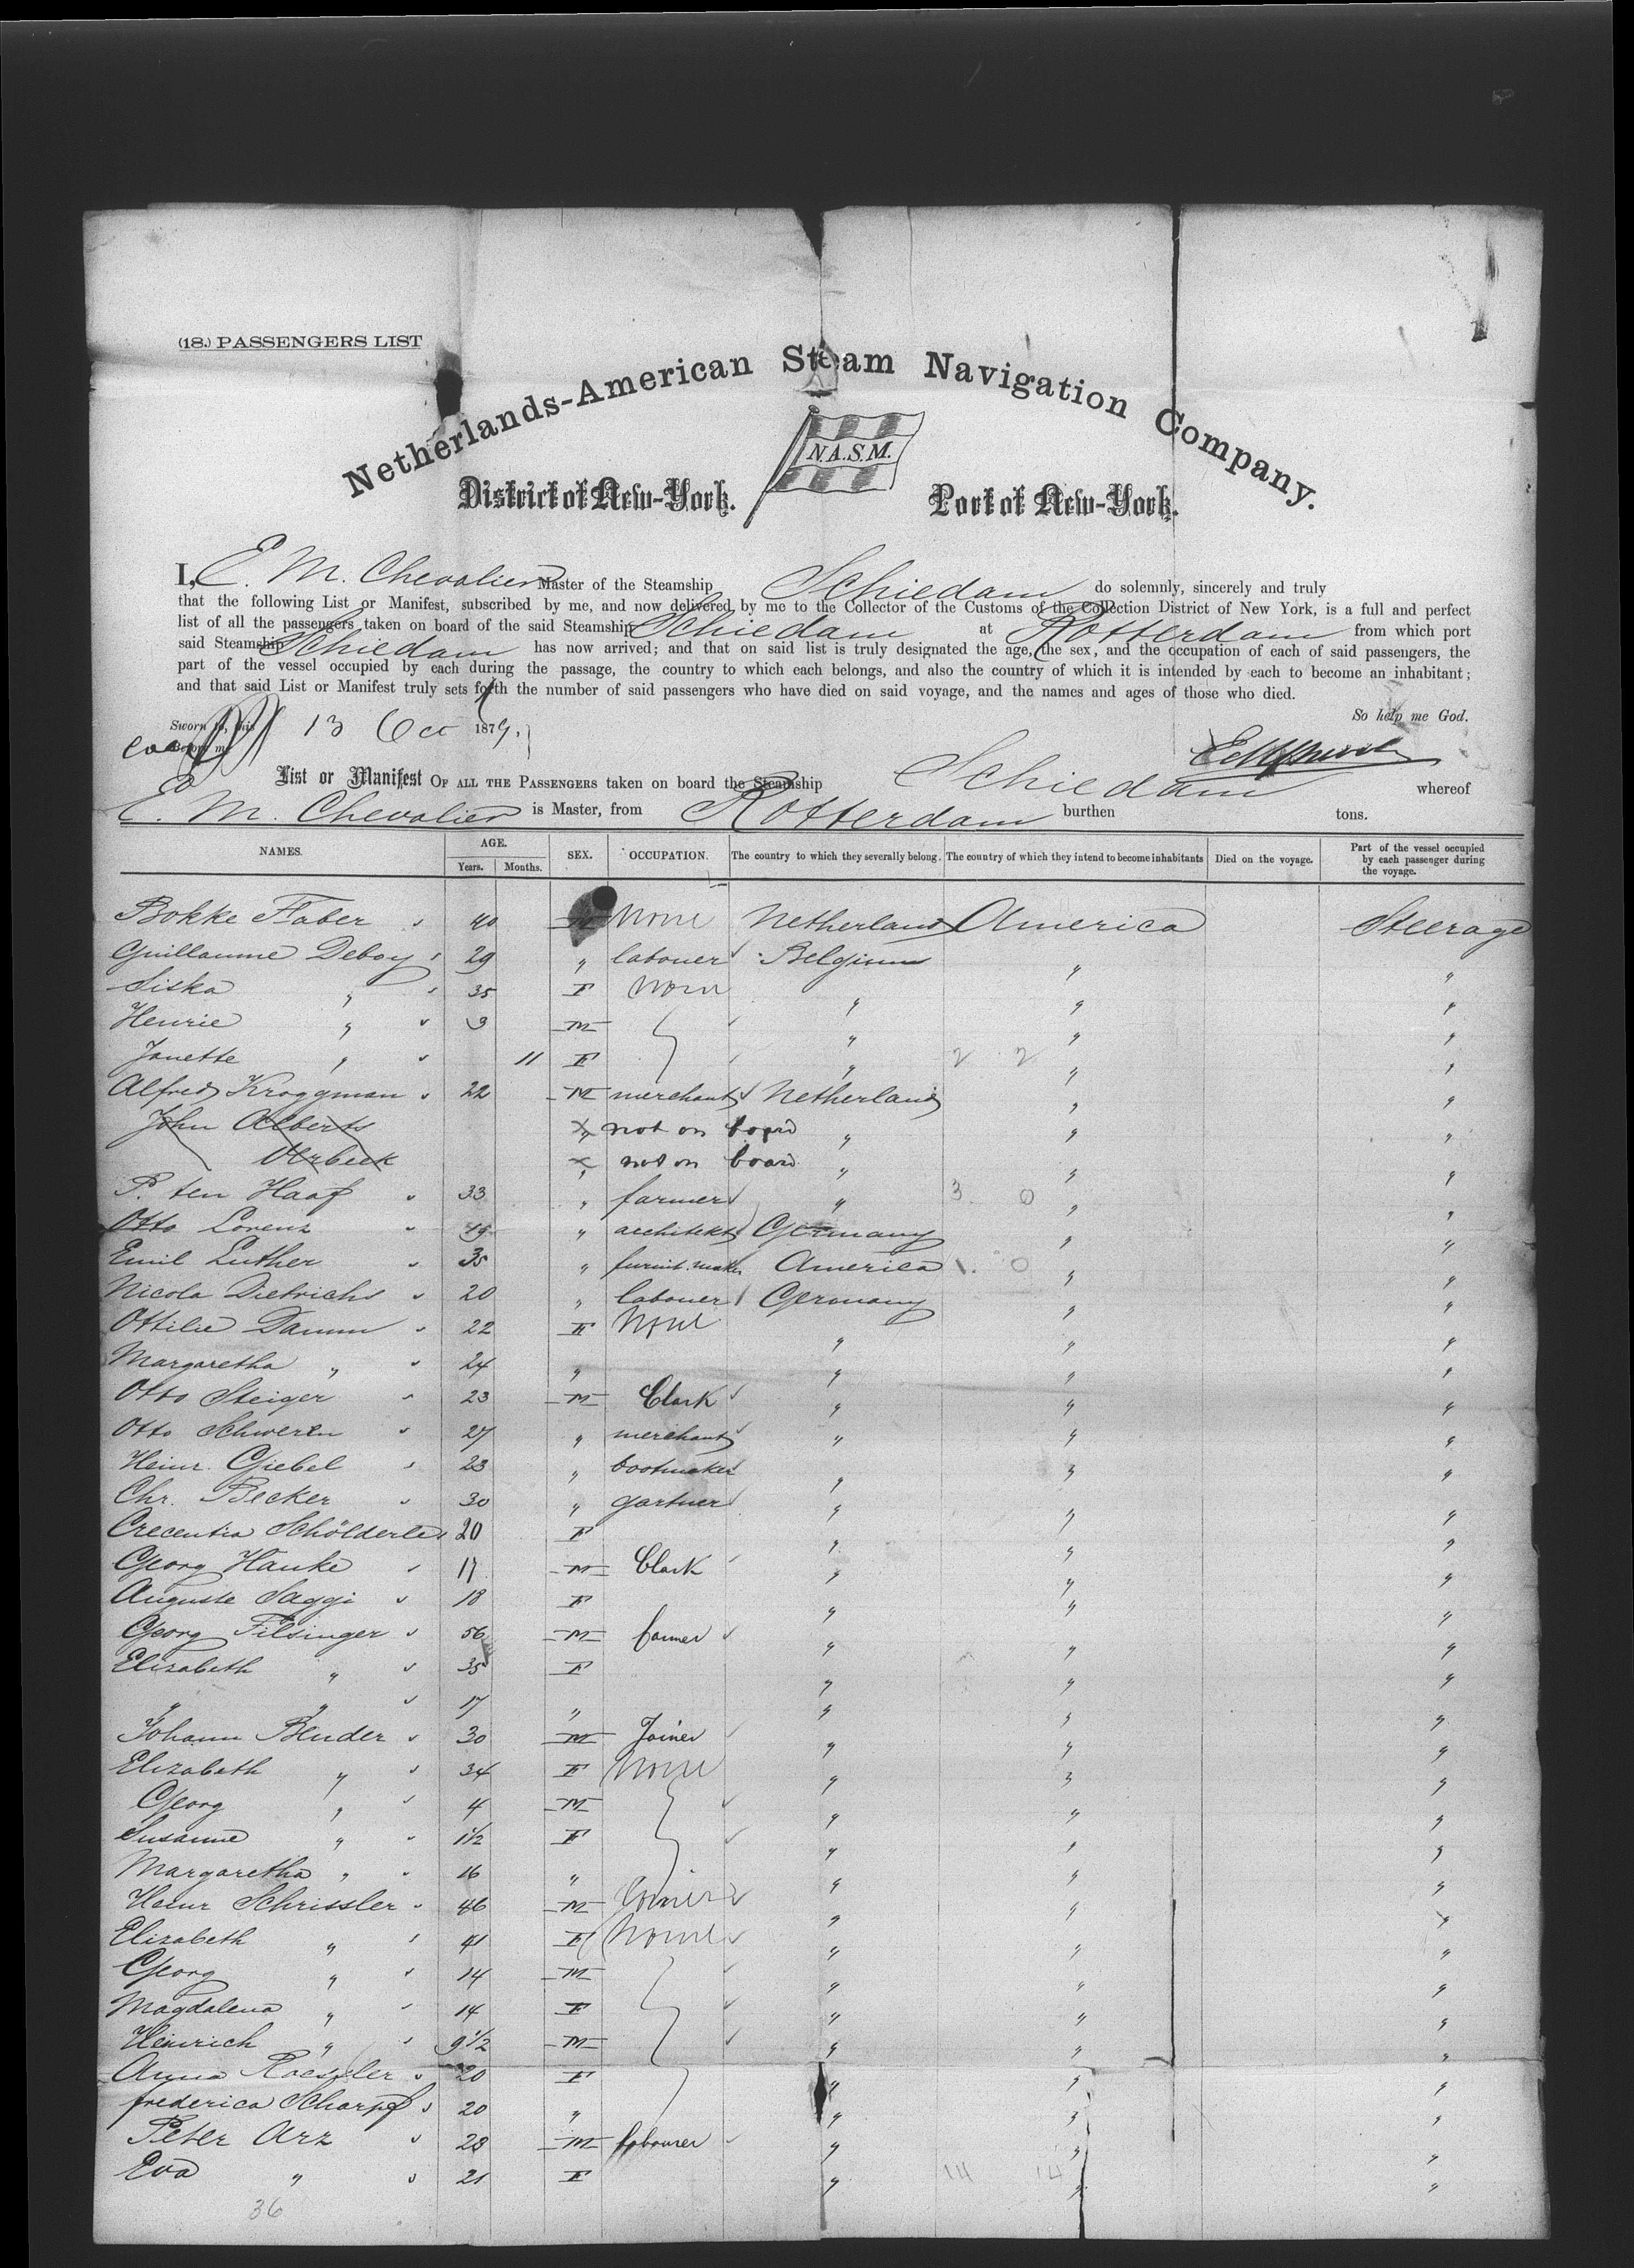 (18.) PASSENGERS LIST
Netherlands-American Steam Navigation Company.
N.A.S.M.
District of New-York. Port of New-York.
I, E. M. Chevalier Master of the Steamship Schiedam do solemnly, sincerely and truly
that the following List or Manifest, subscribed by me, and now delivered by me to the Collector of the Customs of the Collection District of New York, is a full and perfect
list of all the passengers taken on board of the said Steamship Schiedam at Rotterdam from which port
said Steamship Schiedam has now arrived; and that on said list is truly designated the age, the sex, and the occupation of each of said passengers, the
part of the vessel occupied by each during the passage, the country to which each belongs, and also the country of which it is intended by each to become an inhabitant;
and that said List or Manifest truly sets forth the number of said passengers who have died on said voyage, and the names and ages of those who died.
So help me God.
Sworn to, this 13 Oct 1879,
Before me
List or Manifest OF ALL THE PASSENGERS taken on board the Steamship Schiedam whereof
E. M. Chevalier is Master, from Rotterdam burthen tons.
NAMES. AGE. Years. Months. SEX. OCCUPATION. The country to which they severally belong. The country of which they intend to become inhabitants Died on the voyage. Part of the vessel occupied by each passenger during the voyage.
Bokke Faber 40 M None Netherland America Steerage
Guillaume Deboy 29 " labouer Belgium " "
Siska " 35 F None " " "
Henrie " 9 M " " "
Janette " 11 F " 2 2 " "
Alfred Kroggman 22 M merchant Netherland " "
John Alberts " not on board " " "
Verbeek " not on board " " "
P. ten Haaf 33 " farmer " 3 0 " "
Otto Lorenz 19 " architekt Germany " "
Emil Luther 35 " furnit. maker America 1. 0 " "
Nicola Dietrichs 20 " labouer Germany " "
Ottilie Damm 22 F None " " "
Margaretha " 24 " " " "
Otto Steiger 23 M Clark " " "
Otto Schweren 27 " merchant " " "
Heinr. Giebel 23 " bootmaker " " "
Chr. Becker 30 " gartner " " "
Crecentia Schölderle 20 F " " "
Georg Hauke 17 M Clark " " "
Auguste Saggi 18 F " " "
Georg Filsinger 56 M farmer " " "
Elizabeth " 35 F " " "
" " 17 " " " "
Johann Bender 30 M Joiner " " "
Elizabeth " 34 F None " " "
Georg " 4 M " " "
Susanne " 1½ F " " "
Margaretha " 16 " " " "
Heinr Schrissler 46 M " " "
Elizabeth " 41 F None " " "
Georg " 14 M " " "
Magdalena " 14 F " " "
Heinrich " 9½ M " " "
Anna Roessler 20 F " " "
frederica Scharpf 20 " " " "
Peter Arz 28 M labourer " " "
Eva " 21 F " 14 14 " "
36